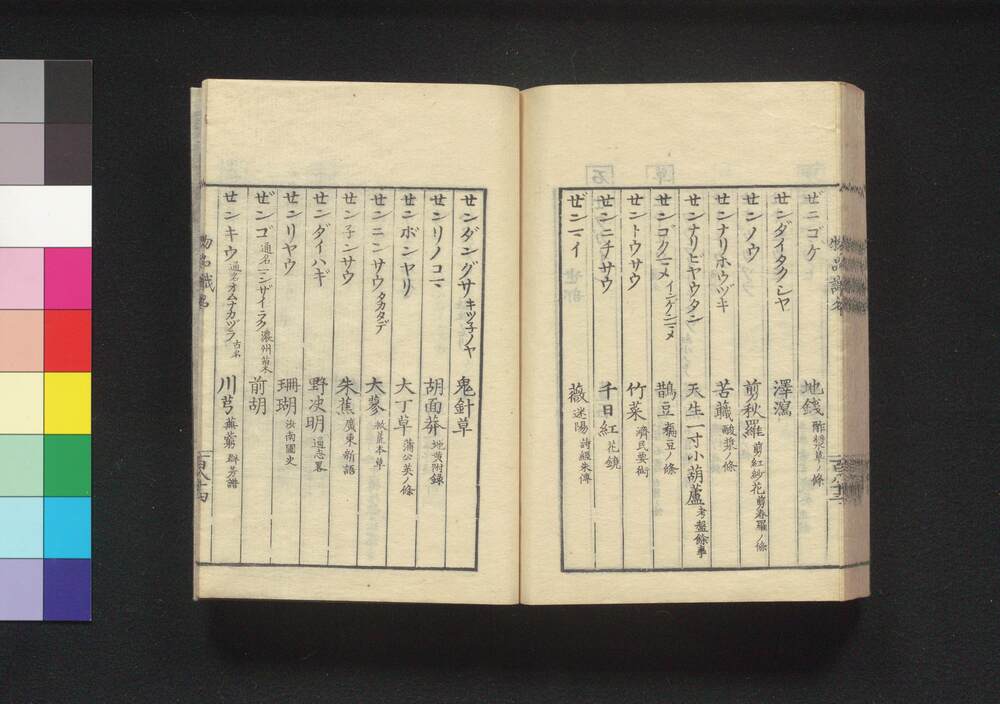 ゼニゴケ 地錢 酢漿草ノ條
センダイタクシヤ 澤瀉
センノウ 剪秋羅 剪紅紗花 剪春羅ノ條
センナリホウヅキ 苦蘵 酸漿ノ條
センナリビヤウタン 天生一寸小葫蘆 考槃餘事
センゴクマメ インゲンマメ 鵲豆 藊豆ノ條
セントウサウ 竹菜 濟民要術
センニチサウ 千日紅 花鏡
ゼンマイ 薇 迷陽 詩經朱傳
センダングサ キツ子ノヤ 鬼針草
センリノコマ 胡面莽 地黄附録
センボンヤリ 大丁草 蒲公英ノ條
センニンサウ タカタデ 大蓼 救荒本草
セン子ンサウ 朱蕉 廣東新語
センダイハギ 野决明 通志畧
センリヤウ 珊瑚 汝南圃史
ゼンゴ 通名 マンザイラク 濃州 前胡
センキウ 通名 オムナカヅラ 古名 川芎 蘼蕪 群芳譜